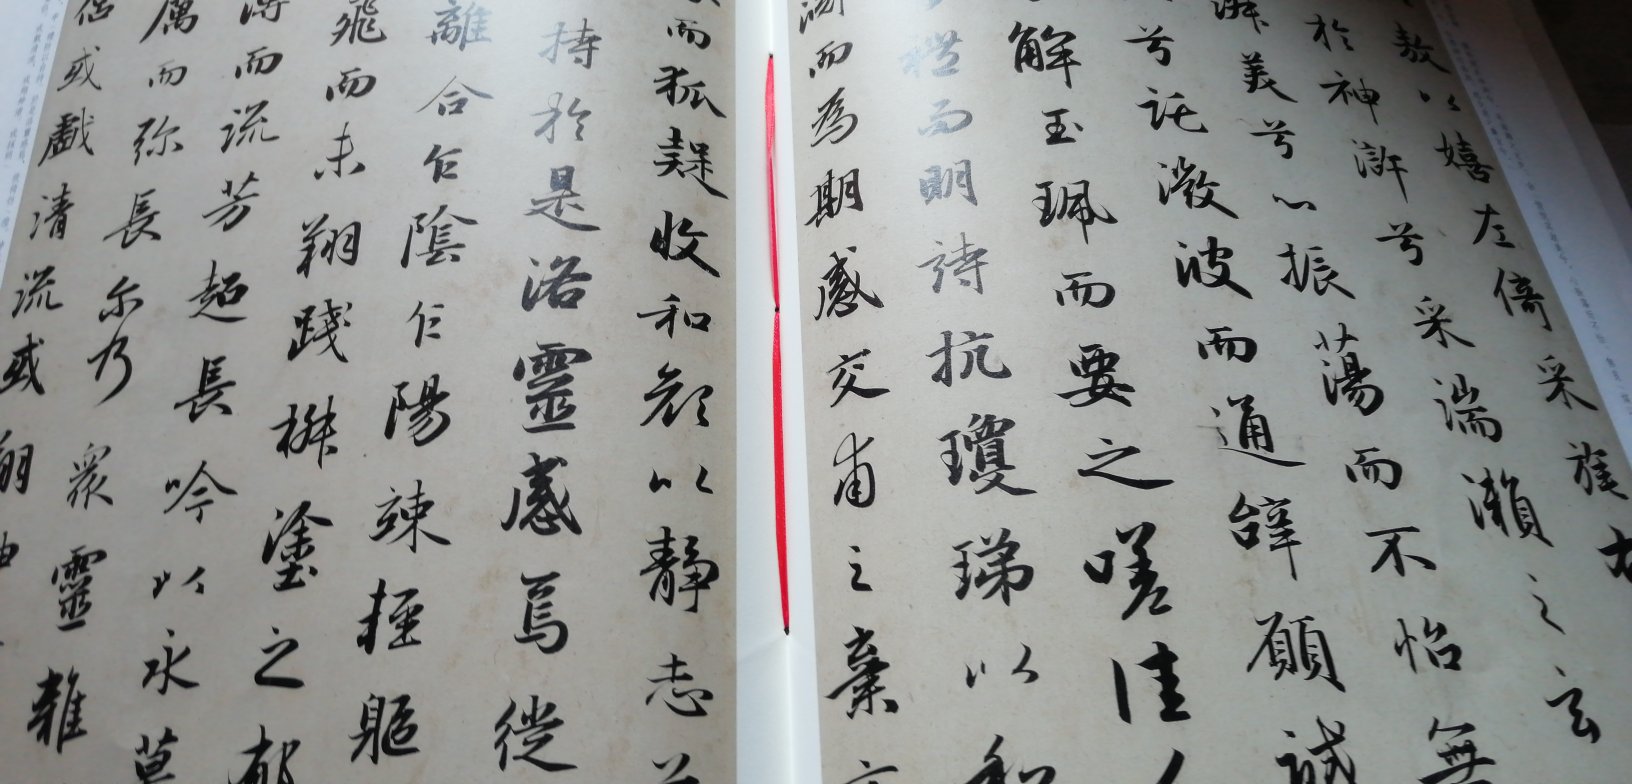 敖以嬉左倚采旄右
於神滸兮采湍瀨之玄
淑美兮心振蕩而不怡無
兮託微波而通辭願誠
解玉珮而要之嗟佳人
禮而明詩抗瓊珶以和
淵而為期感交甫之棄言
而狐疑收和顏以靜志
持於是洛靈感焉徙
離合乍陰乍陽竦輕軀
飛而未翔踐椒塗之郁
薄而流芳超長吟以永慕
厲而弥長尔乃眾靈雜
侶或戲清流或翔神